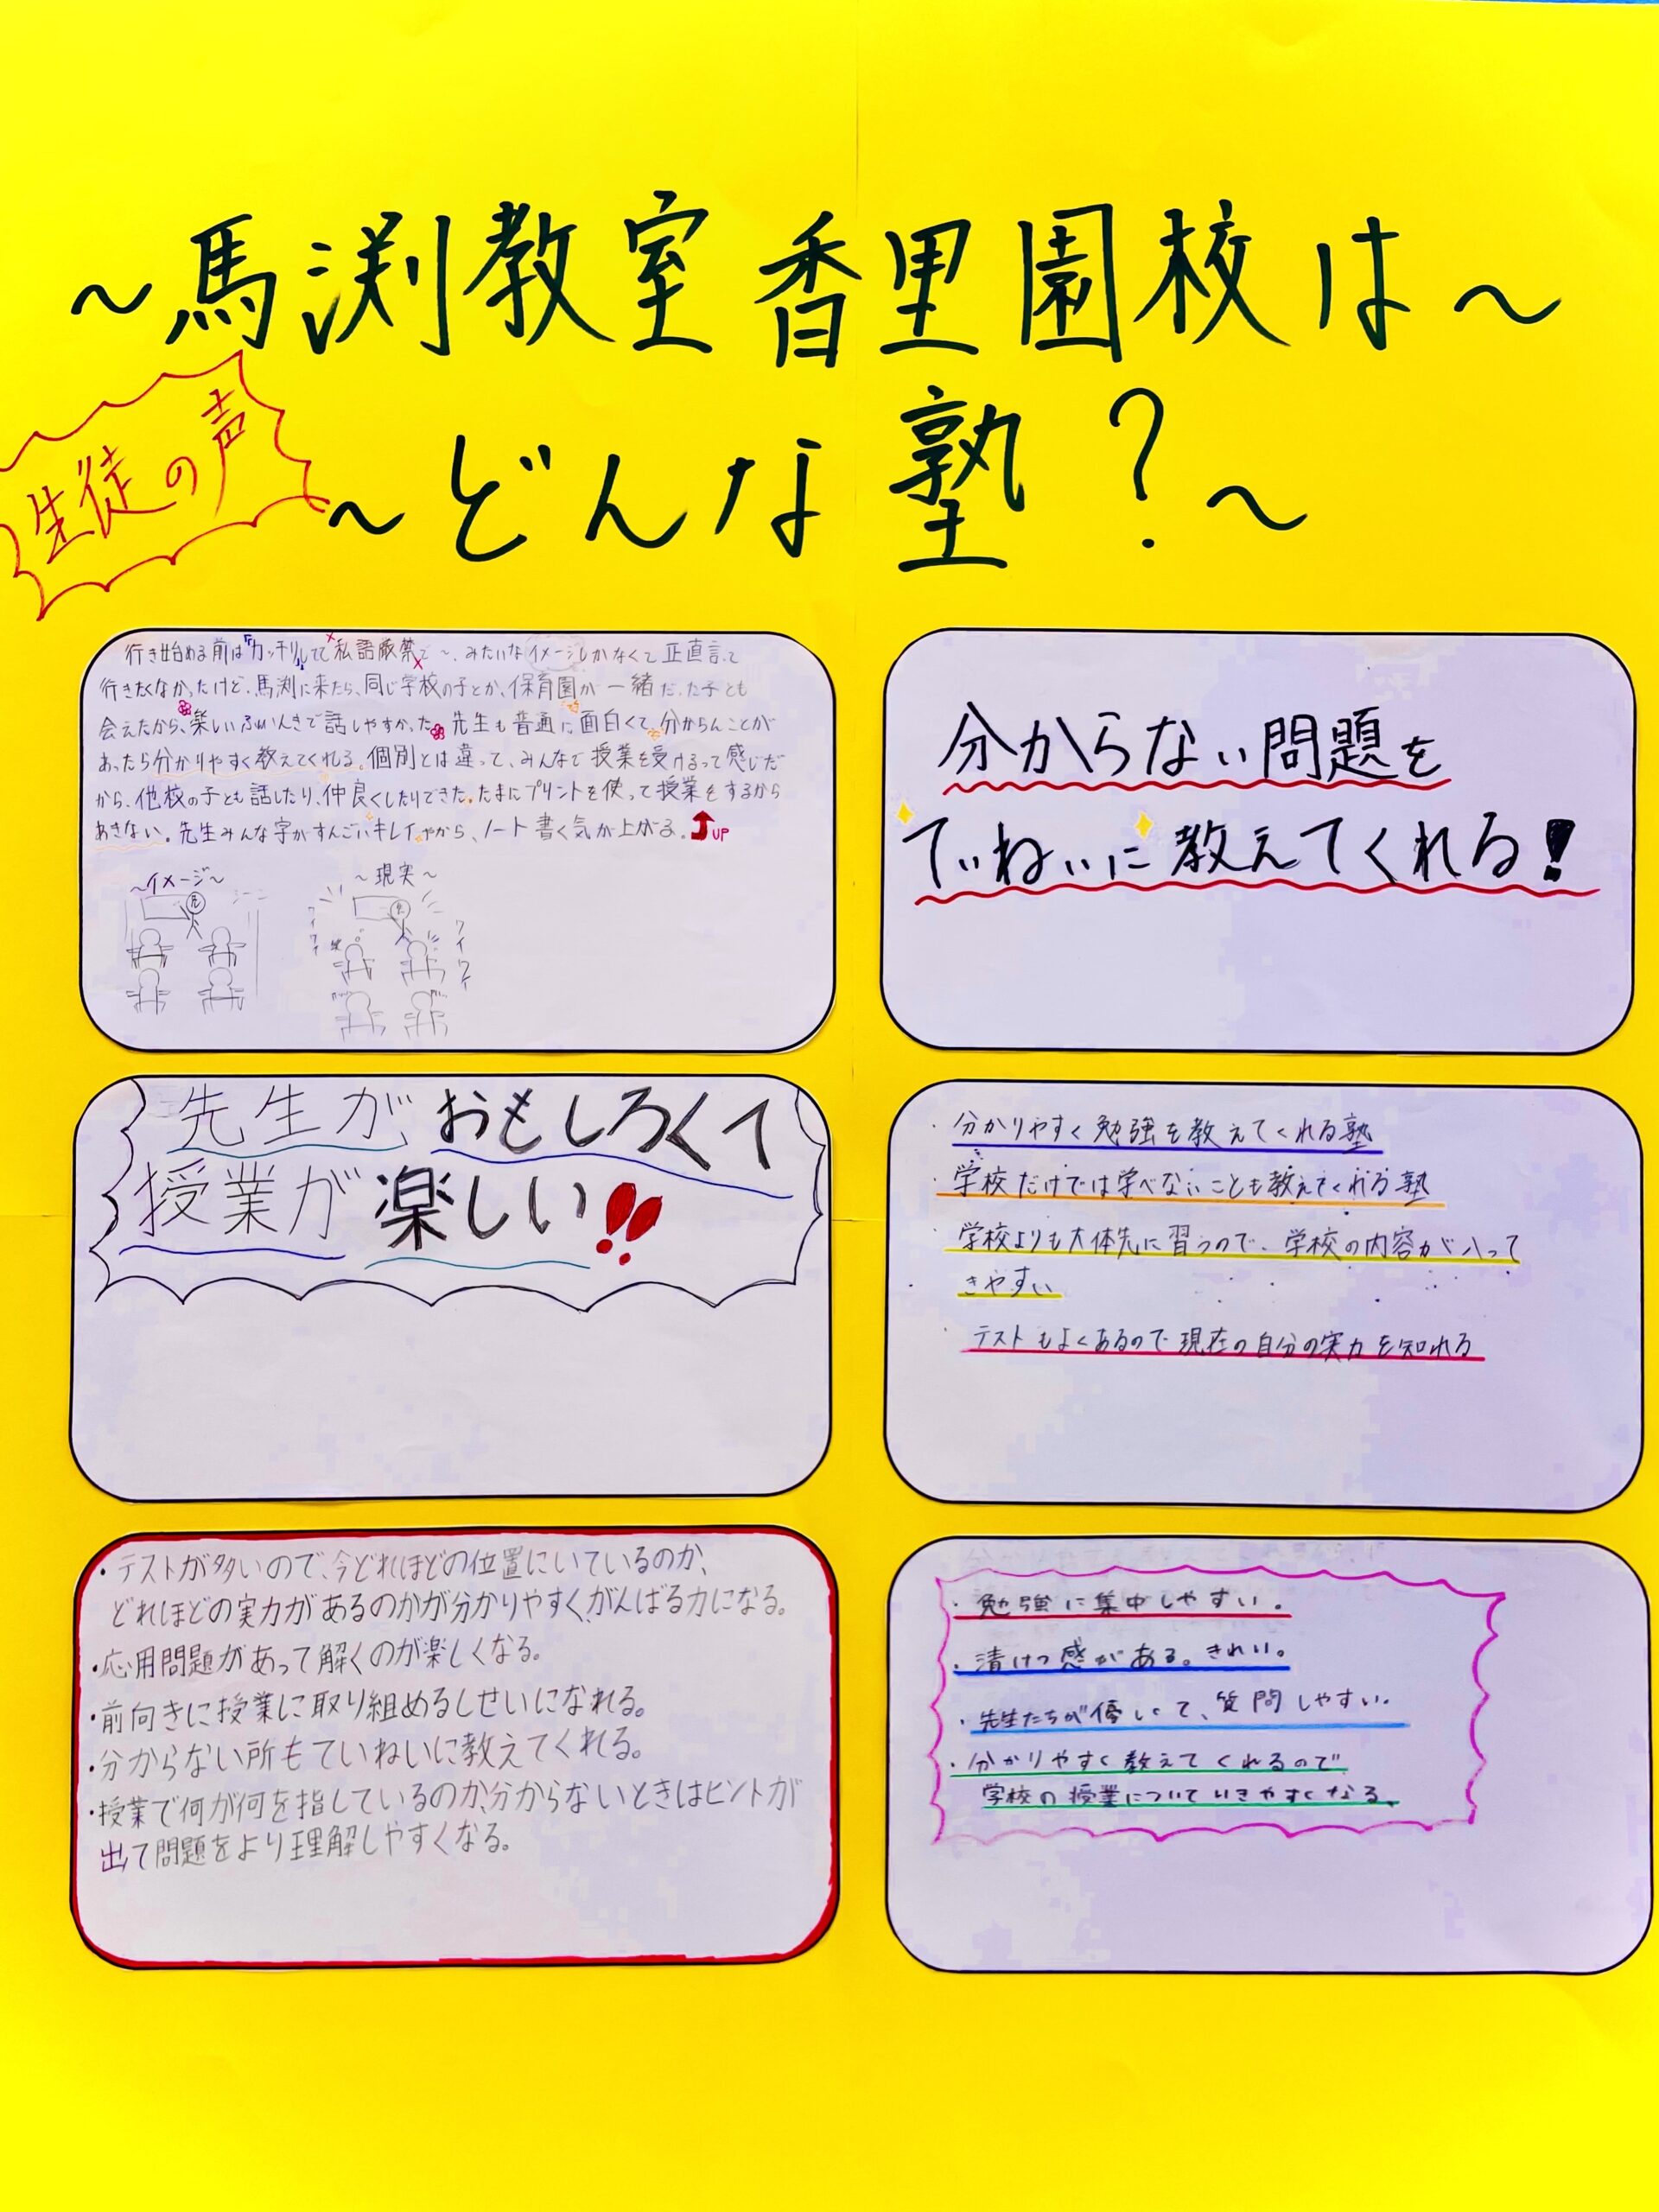 ～馬渕教室香里園校は～
生徒の声
～どんな塾？～
行き始める前は『カッチリ』してて私語厳禁で～、みたいなイメージしかなくて正直言って
行きたくなかったけど、馬渕に来たら、同じ学校の子とか、保育園が一緒だった子とも
会えたから、楽しいふんいきで話しやすかった 先生も普通に面白くて、分からんことが
あったら分かりやすく教えてくれる。個別とは違って、みんなで授業を受けるって感じだ
から、他校の子とも話したり、仲良くしたりできた。たまにプリントを使って授業をするから
あきない。先生みんな字がすんごいキレイやから、ノート書く気が上がる。UP
～イメージ～
～現実～
ワイワイ
ワイワイ
分からない問題を
ていねいに教えてくれる!
先生がおもしろくて
授業が楽しい!!
・分かりやすく勉強を教えてくれる塾
・学校だけでは学べないことも教えてくれる塾
・学校よりも大体先に習うので、学校の内容が入って
きやすい
・テストもよくあるので現在の自分の実力を知れる
・テストが多いので、今どれほどの位置にいているのか、
どれほどの実力があるのかが分かりやすく、がんばる力になる。
・応用問題があって解くのが楽しくなる。
・前向きに授業に取り組めるしせいになれる。
・分からない所もていねいに教えてくれる。
・授業で何が何を指しているのか、分からないときはヒントが
出て問題をより理解しやすくなる。
・勉強に集中しやすい。
・清けつ感がある。きれい。
・先生たちが優しくて、質問しやすい。
・分かりやすく教えてくれるので
学校の授業についていきやすくなる。